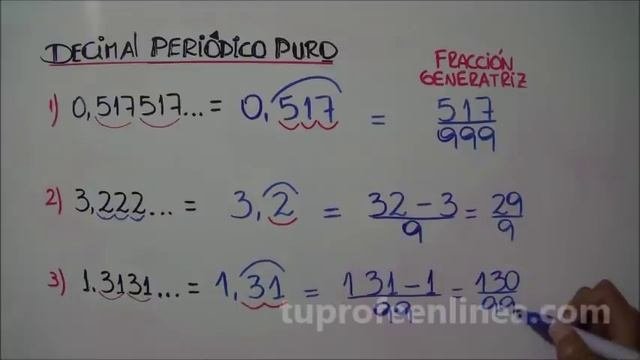 DECIMAL PERIÓDICO PURO
FRACCIÓN
GENERATRIZ
1) 0,517517... = 0,517 = 517/999
2) 3,222... = 3,2 = 32-3/9 = 29/9
3) 1,3131... = 1,31 = 131-1/99 = 130/99
tuprofeenlinea.com